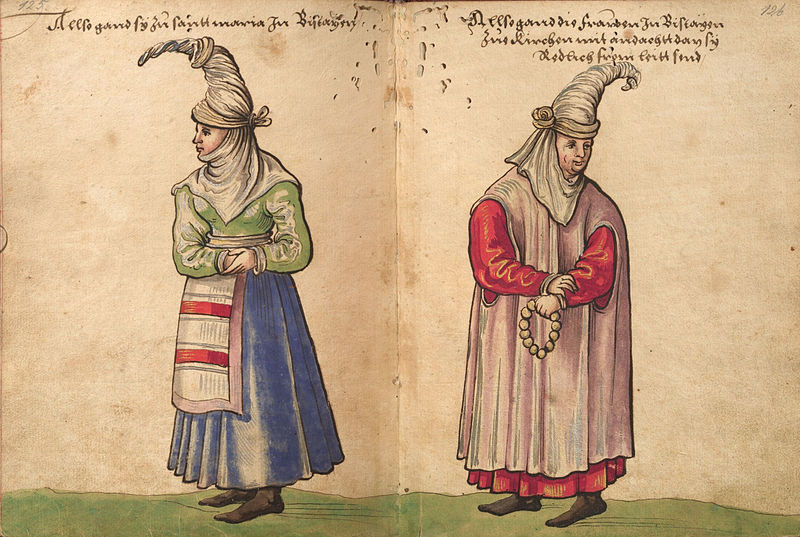 125.
Allso gand sy zu santt maria In Biscayen
126
Allso gand die frawen In Biscayen
Zue Kirchen mit andacht day sy
Redlich frem leitt send